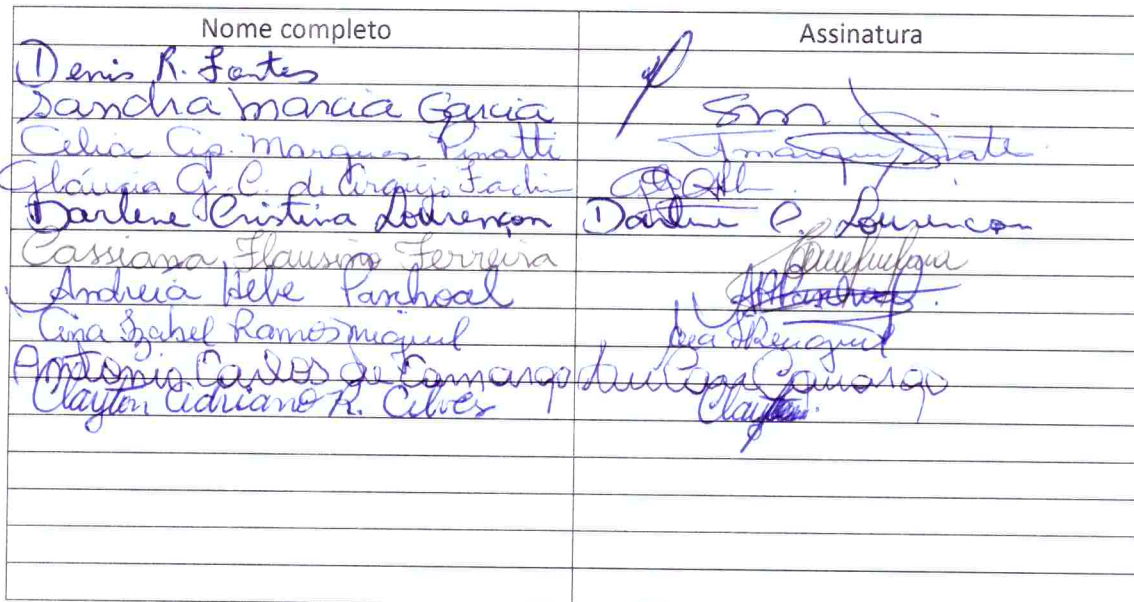 Nome completo Assinatura
Denis R. Fontes
Sandra Marcia Garcia
Celia Ap. Marques Pinatti
Gláucia G. C. de Araujo Fachin
Darlene Cristina Lourençon Darlene C. Lourençon
Cassiana Flausino Ferreira
Andreia Hebe Panhoal
Ana Izabel Ramos Miguel
Antonio Carlos de Camargo Camargo
Clayton Adriano R. Alves Clayton